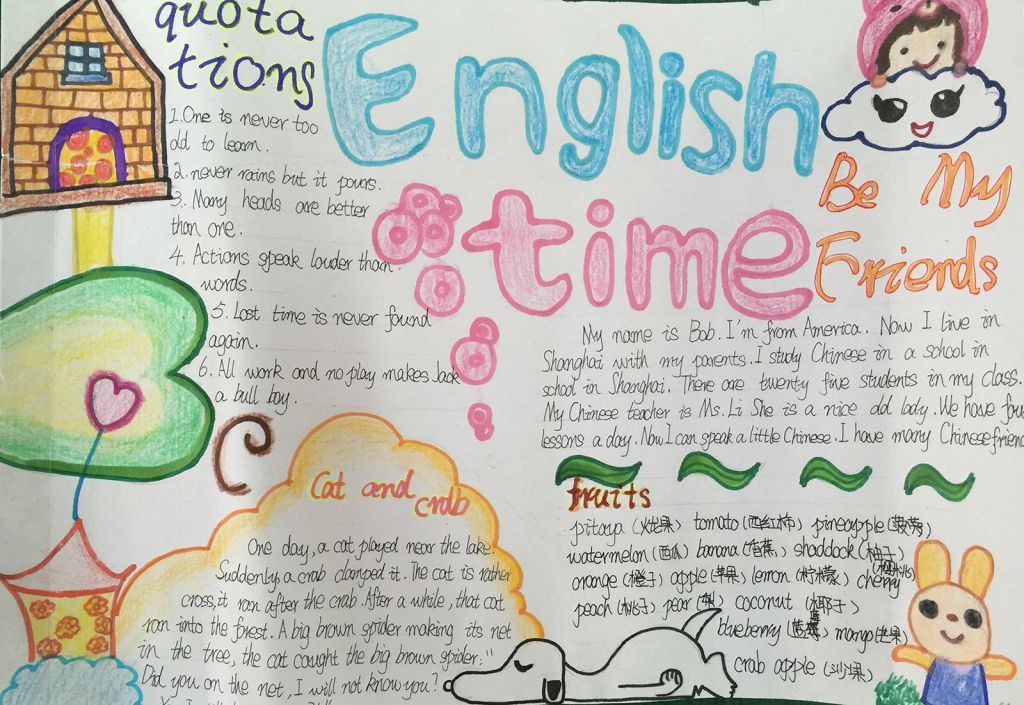 quota
tions
English
time
1.One is never too
old to learn.
2.never rains but it pours.
3. Many heads are better
than one.
4. Actions speak louder than
words.
5. Lost time is never found
again.
6. All work and no play makes Jack
a bull boy.
Be My
Friends
My name is Bob. I'm from America. Now I live in
Shanghai with my parents. I study Chinese in a school in
school in Shanghai. There are twenty five students in my class.
My Chinese teacher is Ms. Li She is a nice old lady. We have four
lessons a day. Now I can speak a little Chinese. I have many Chinese friend
Cat and
crab
One day, a cat played near the lake.
Suddenly, a crab clamped it. The cat is rather
cross, it ran after the crab. After a while, that cat
ran into the forest. A big brown spider making its net
in the tree, the cat caught the big brown spider:"
Did you on the net, I will not know you?
fruits
pitaya (火龙果) tomato (西红柿) pineapple (菠萝)
watermelon (西瓜) banana (香蕉) shaddock (柚子)
orange (橙子) apple (苹果) lemon (柠檬) cherry (樱桃)
peach (桃子) pear (梨) coconut (椰子)
blueberry (蓝莓) mango (芒果)
crab apple (沙果)